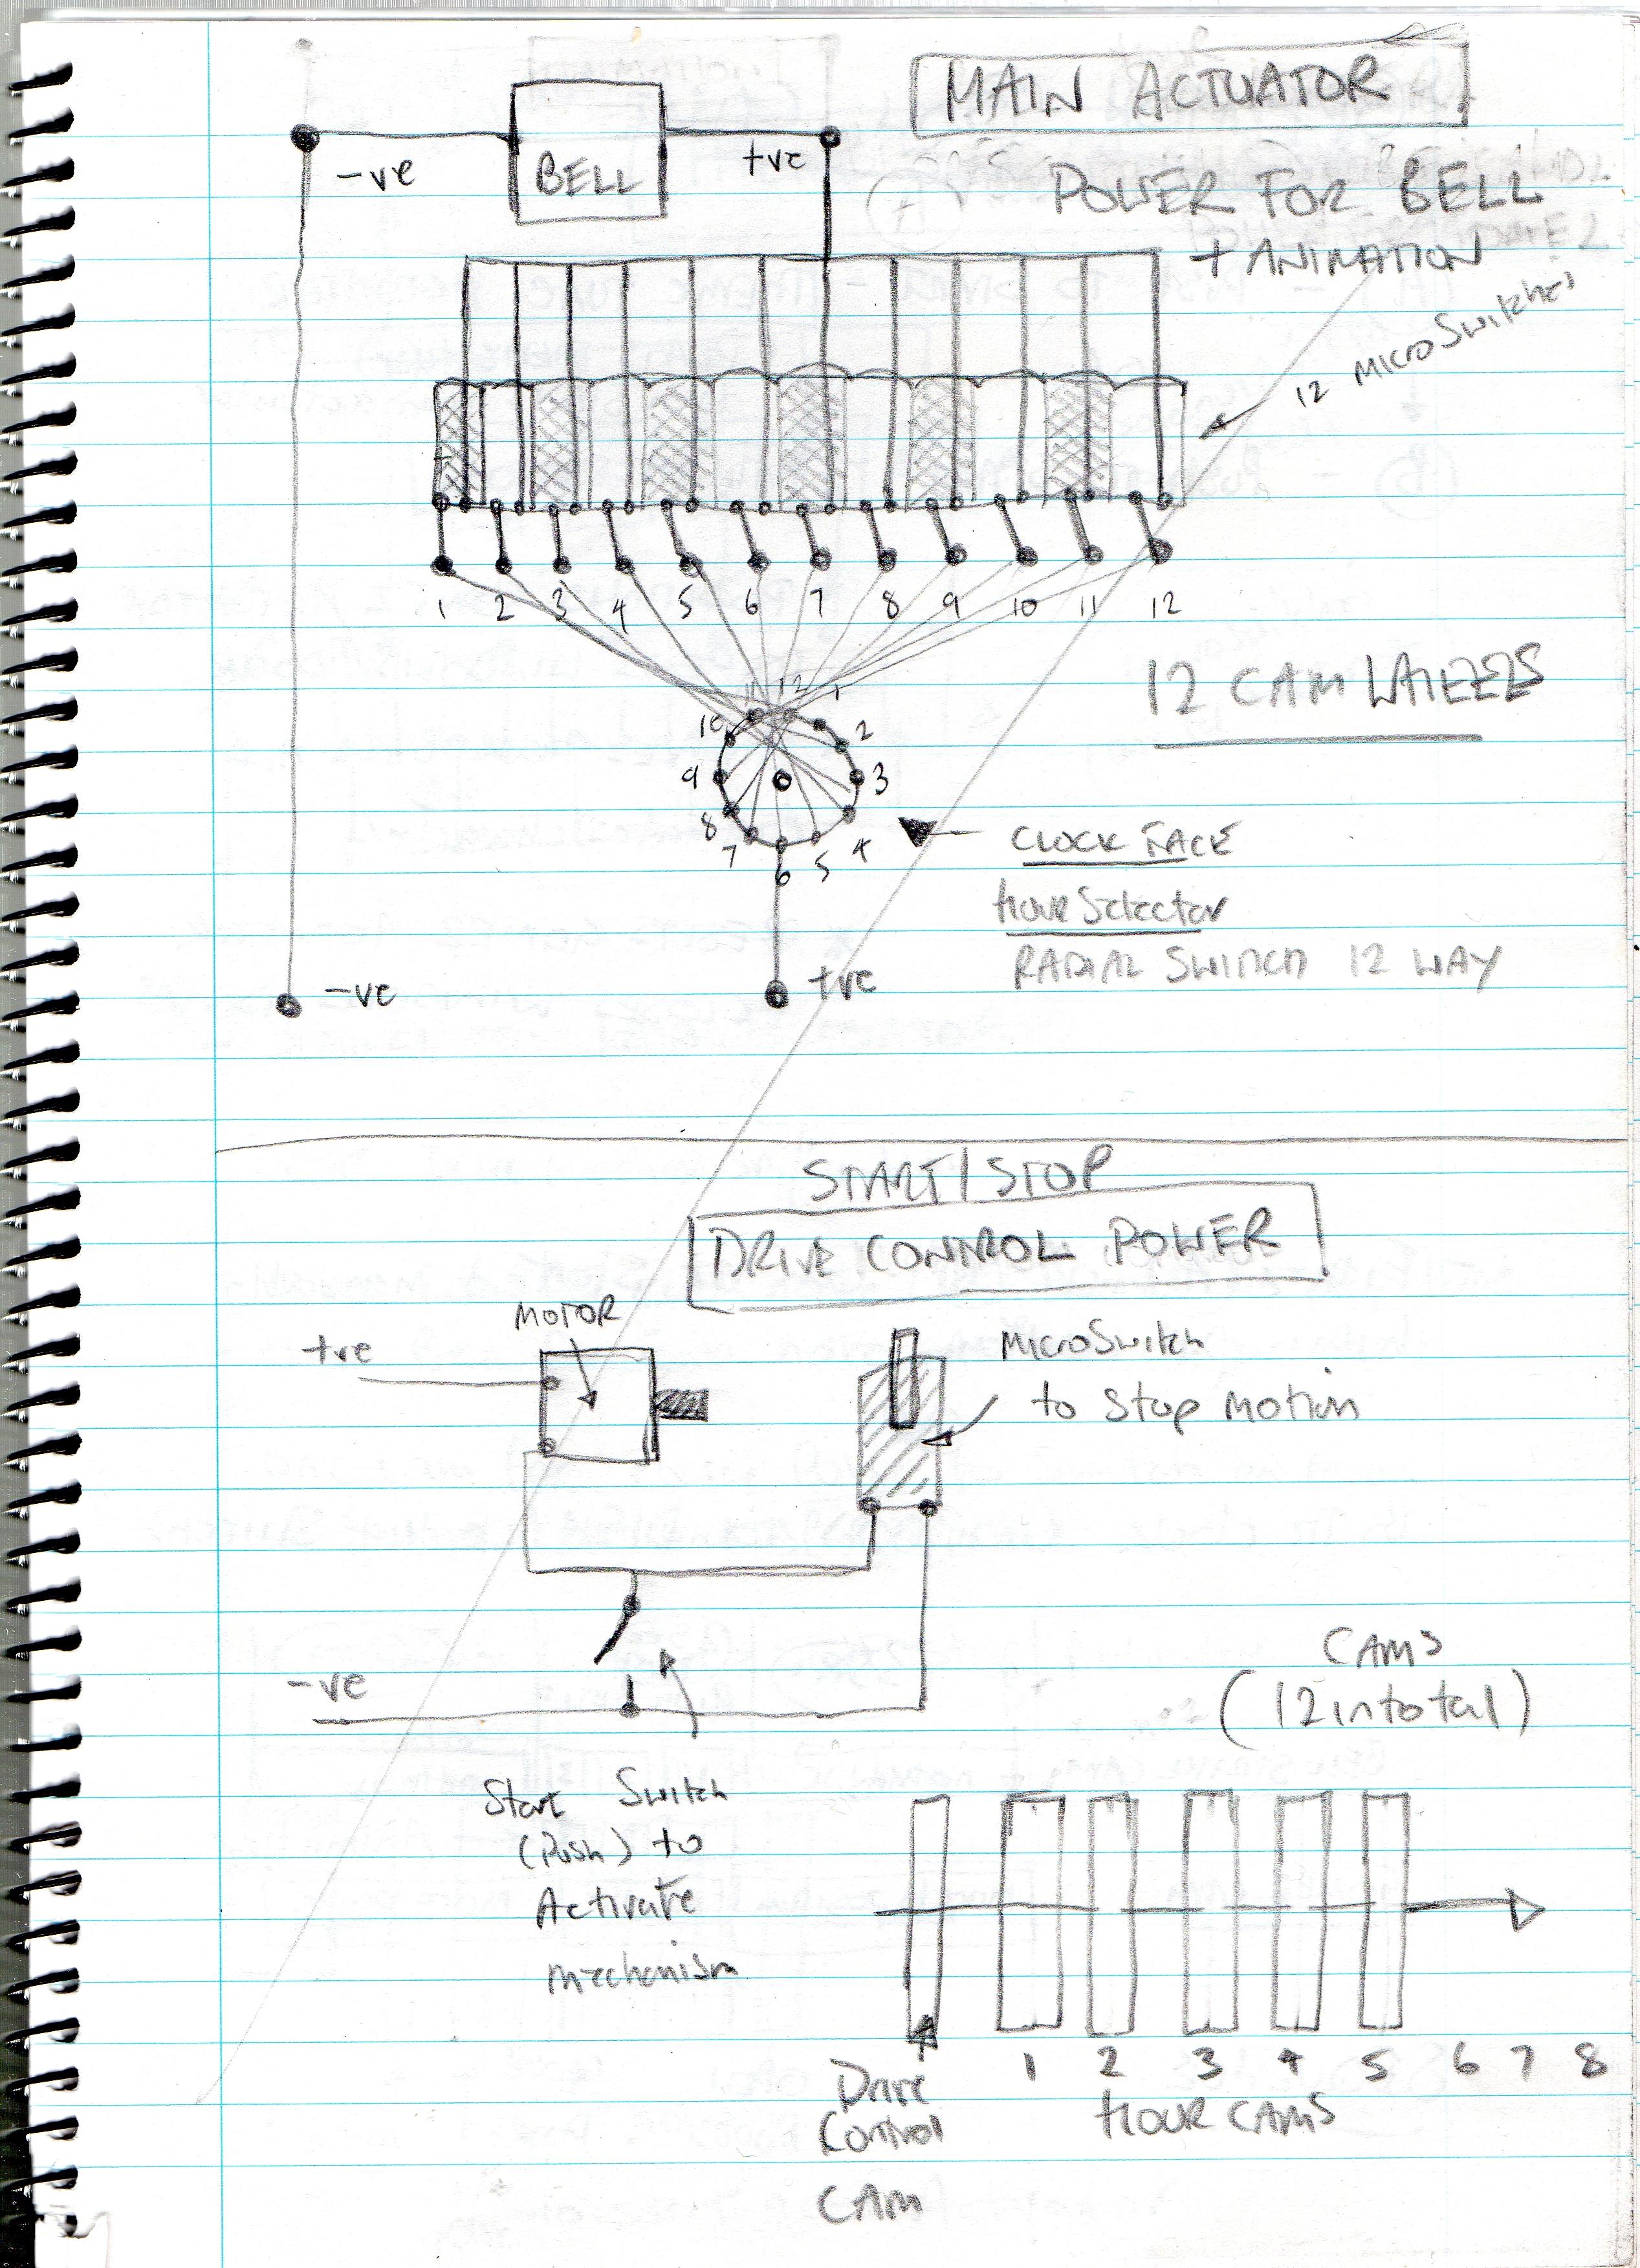 MAIN ACTUATOR
-ve
BELL
+ve
POWER FOR BELL
+ ANIMATION
12 MICROSwitches
1 2 3 4 5 6 7 8 9 10 11 12
12 CAM WHEELS
11 12 1
10 2
9 3
8 4
7 6 5
CLOCK FACE
Hour Selector
RADIAL SWITCH 12 WAY
-ve
+ve
START/STOP
DRIVE CONTROL POWER
MOTOR
+ve
MICROSwitch
to Stop Motion
-ve
CAMS
(12 in total)
Start Switch
(Push) to
Activate
mechanism
1 2 3 4 5 6 7 8
Drive
Control
CAM
HOUR CAMS